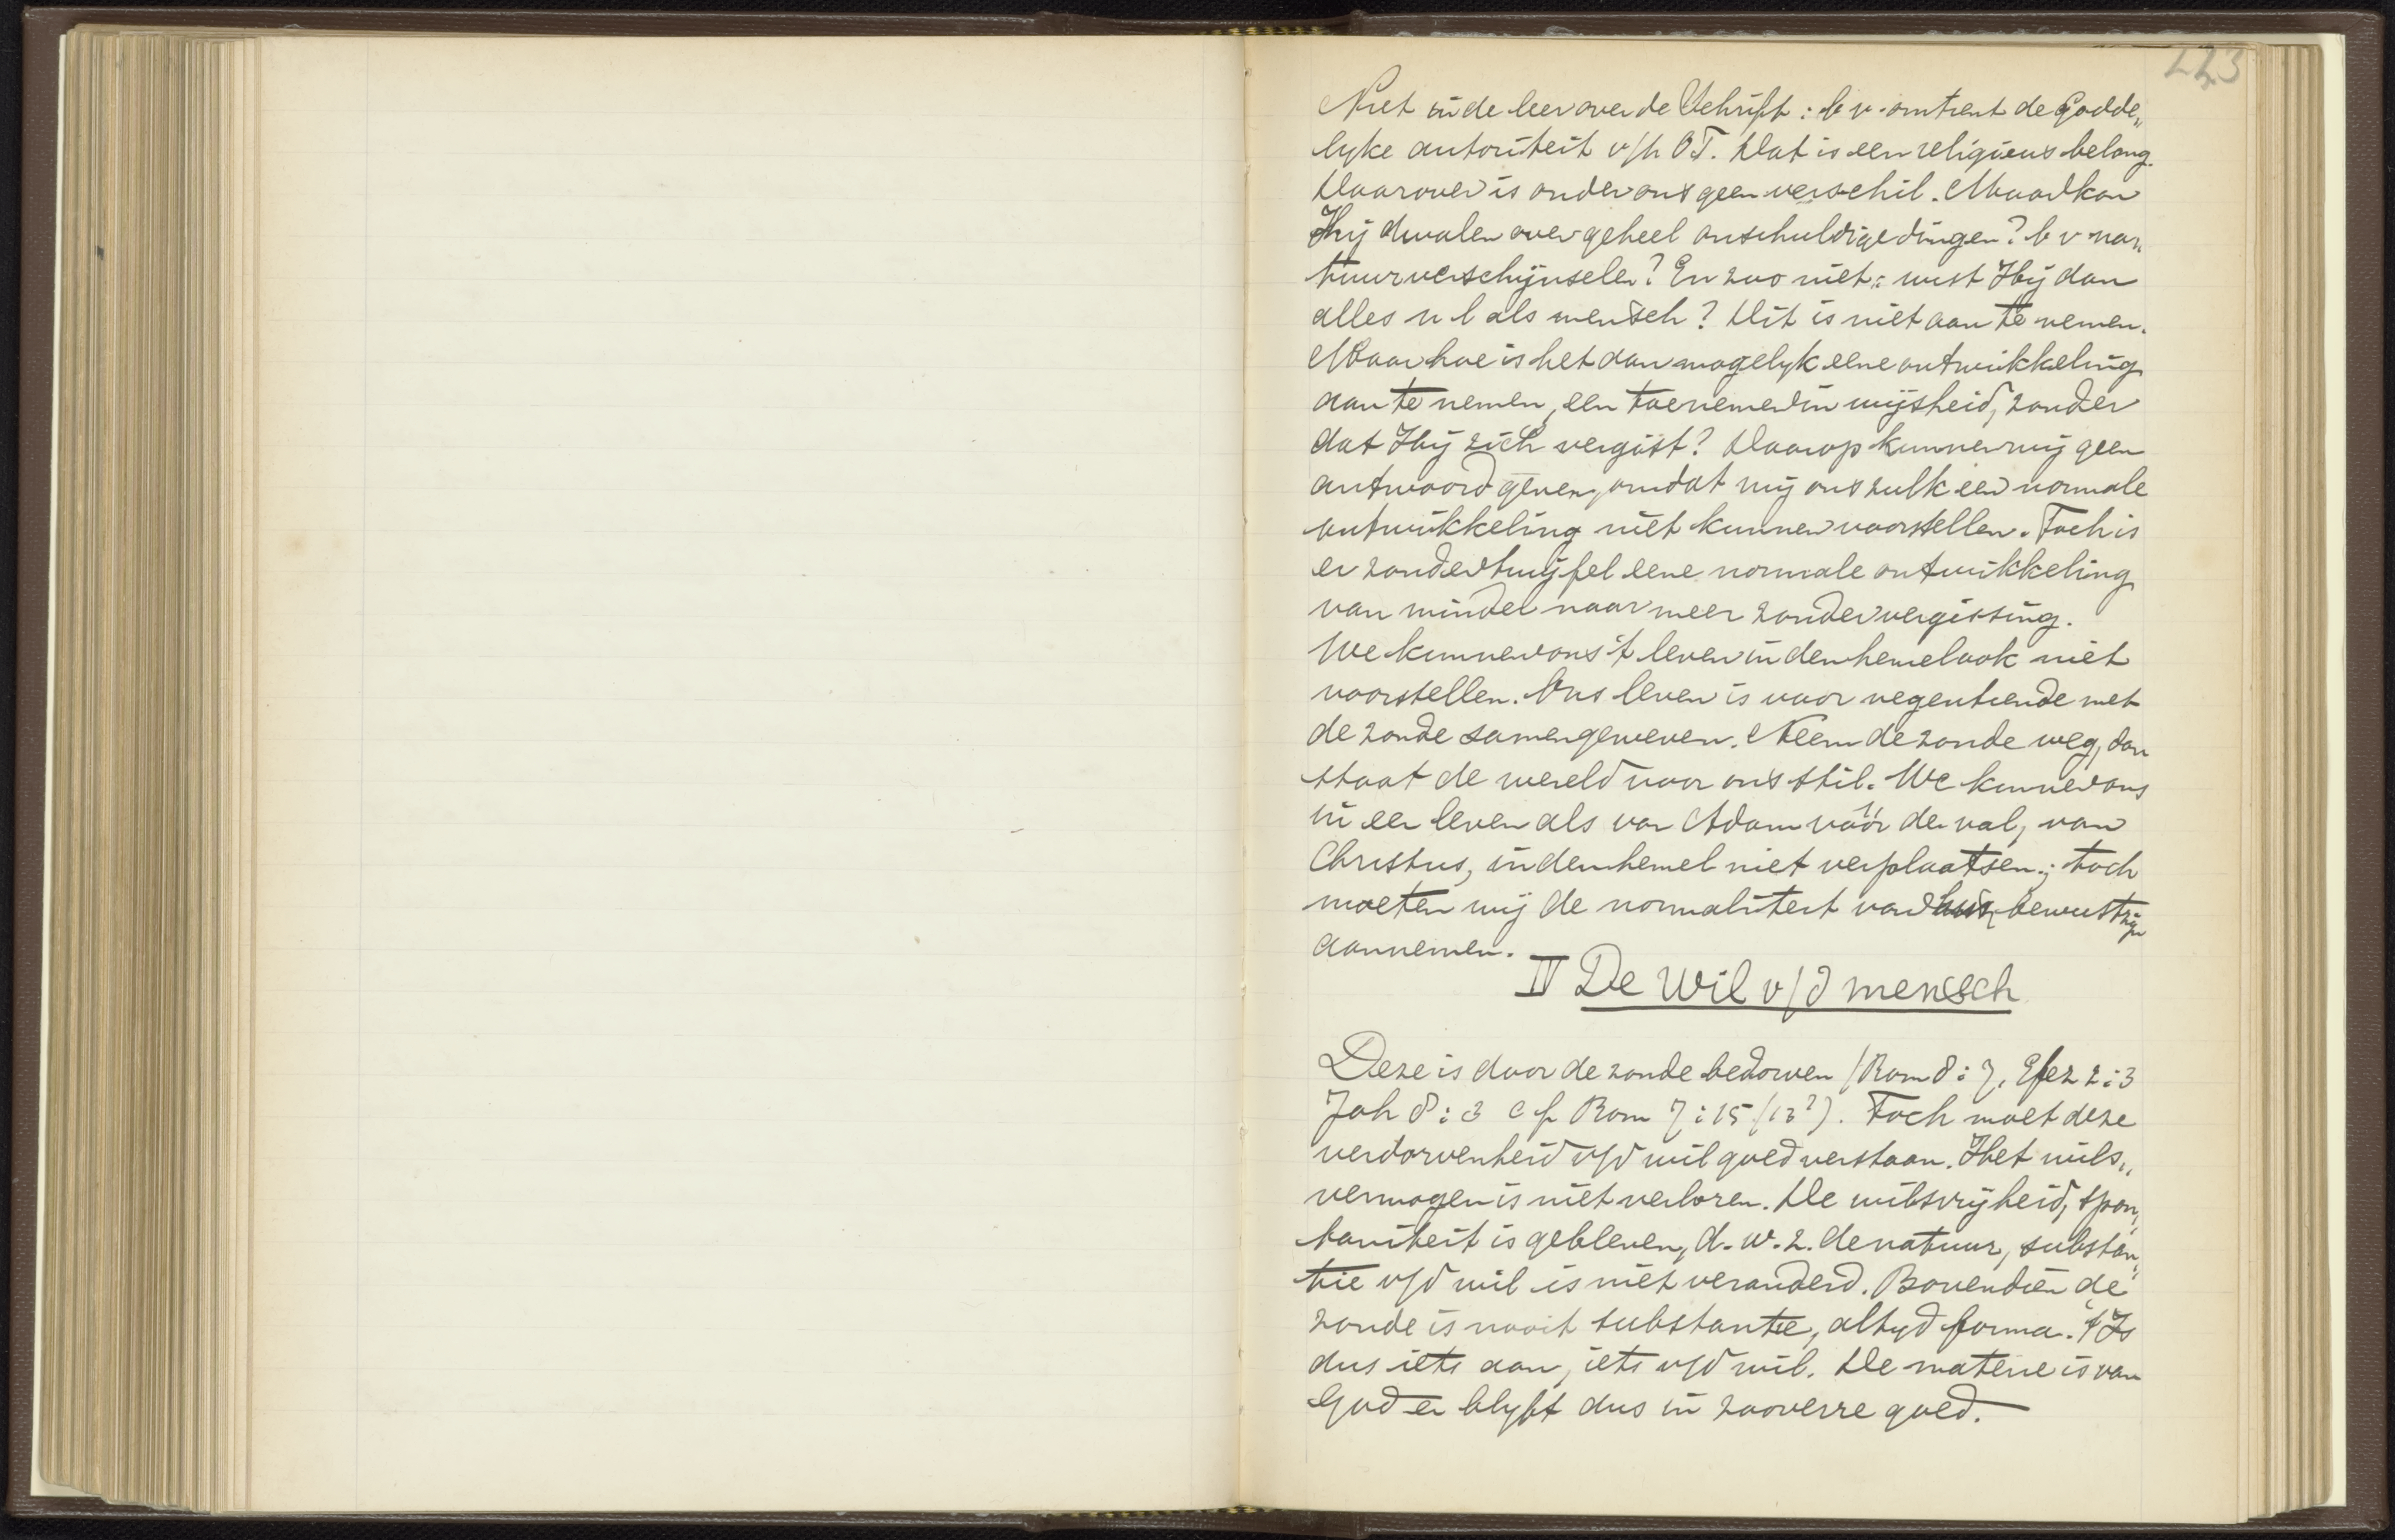 223
Niet in de leer over de Schrift: b v. omtrent de Godde„
lyke autoriteit v/h OT. Dat is een religieus belang.
Daarover is onder ons geen verschil. Maar kon
Hij dwalen over geheel onschuldige dingen? b v na„
tuurverschijnselen? En zoo niet: wist Hij dan
alles n l als mensch? Dit is niet aan te nemen.
Maar hoe is het dan mogelyk eene ontwikkeling
aan te nemen, een toenemen in wijsheid, zonder
dat Hij zich vergist? Daarop kunnen wij geen
antwoord geven, omdat wij ons zulk een normale
ontwikkeling niet kunnen voorstellen. Toch is
er zonder twijfel eene normale ontwikkeling
van minder naar meer zonder vergissing.
We kunnen ons 't leven in den hemel ook niet
voorstellen. Ons leven is voor negentiende met
de zonde samengeweven. Neem de zonde weg, dan
staat de wereld voor ons stil. We kunnen ons
in een leven als van Adam vóór den val, van
Christus, in den hemel niet verplaatsen; toch
moeten wij de normaliteit van hun bewustzijn
aannemen.
IV De Wil v/d mensch
Deze is door de zonde bedorven (Rom 8:7, Efez 2:3
Joh 8:3 cf Rom 7:15 (13?). Toch moet deze
verdorvenheid v/d wil goed verstaan. Het wils„
vermogen is niet verloren. De wilsvrijheid, spon„
taniteit is gebleven, d. w. z. de natuur, substan„
tie v/d wil is niet veranderd. Bovendien de
zonde is nooit substantie, altyd forma. 't Is
dus iets aan, iets v/d wil. De materie is van
God en blyft dus in zooverre goed.